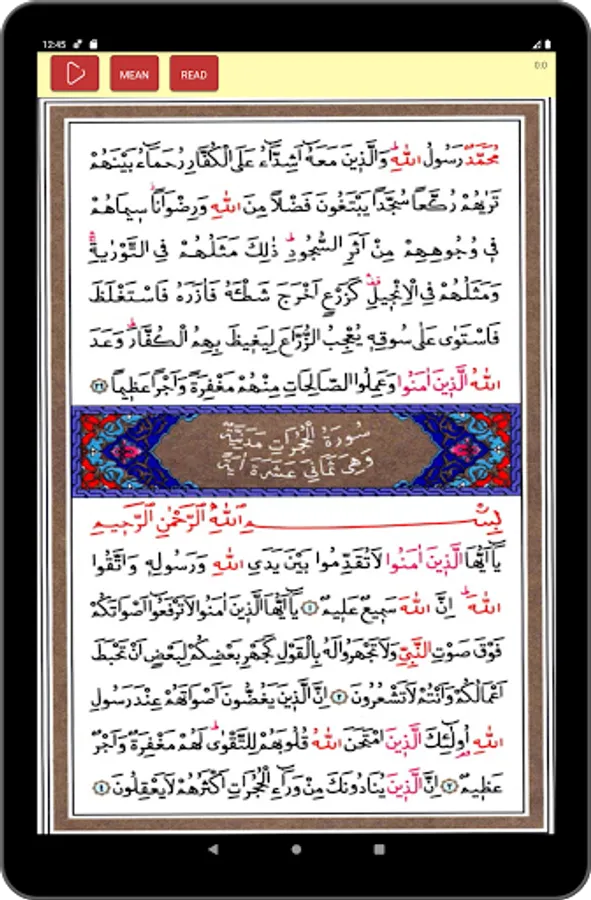 12:45
MEAN
READ
0:0
مُحَمَّدٌ رَسُولُ اللهِ وَالَّذِينَ مَعَهُ اَشِدَّاءُ عَلَى الْكُفَّارِ رُحَمَاءُ بَيْنَهُمْ
تَرٰيهُمْ رُكَّعاً سُجَّداً يَبْتَغُونَ فَضْلاً مِنَ اللهِ وَرِضْوَاناً سِيمَاهُمْ
فِى وُجُوهِهِمْ مِنْ اَثَرِ السُّجُودِ ذٰلِكَ مَثَلُهُمْ فِى التَّوْرٰيةِ
وَمَثَلُهُمْ فِى الْاِنْجِيلِ كَزَرْعٍ اَخْرَجَ شَطْـَٔهُ فَاٰزَرَهُ فَاسْتَغْلَظَ
فَاسْتَوٰى عَلٰى سُوقِهِ يُعْجِبُ الزُّرَّاعَ لِيَغِيظَ بِهِمُ الْكُفَّارَ وَعَدَ
اللهُ الَّذِينَ اٰمَنُوا وَعَمِلُوا الصَّالِحَاتِ مِنْهُمْ مَغْفِرَةً وَاَجْراً عَظِيماً ٢٩
سُورَةُ الْحُجُرَاتِ مَدَنِيَّةٌ
وَهِىَ ثَمَانِىَ عَشْرَةَ اٰيَةً
بِسْمِ اللهِ الرَّحْمٰنِ الرَّحِيمِ
يَٓا اَيُّهَا الَّذِينَ اٰمَنُوا لَا تُقَدِّمُوا بَيْنَ يَدَىِ اللهِ وَرَسُولِهِ وَاتَّقُوا
اللهَ اِنَّ اللهَ سَمِيعٌ عَلِيمٌ ١ يَٓا اَيُّهَا الَّذِينَ اٰمَنُوا لَا تَرْفَعُٓوا اَصْوَاتَكُمْ
فَوْقَ صَوْتِ النَّبِىِّ وَلَا تَجْهَرُوا لَهُ بِالْقَوْلِ كَجَهْرِ بَعْضِكُمْ لِبَعْضٍ اَنْ تَحْبَطَ
اَعْمَالُكُمْ وَاَنْتُمْ لَا تَشْعُرُونَ ٢ اِنَّ الَّذِينَ يَغُضُّونَ اَصْوَاتَهُمْ عِنْدَ رَسُولِ
اللهِ اُولٰٓئِكَ الَّذِينَ امْتَحَنَ اللهُ قُلُوبَهُمْ لِلتَّقْوٰى لَهُمْ مَغْفِرَةٌ وَاَجْرٌ
عَظِيمٌ ٣ اِنَّ الَّذِينَ يُنَادُونَكَ مِنْ وَرَٓاءِ الْحُجُرَاتِ اَكْثَرُهُمْ لَا يَعْقِلُونَ ٤